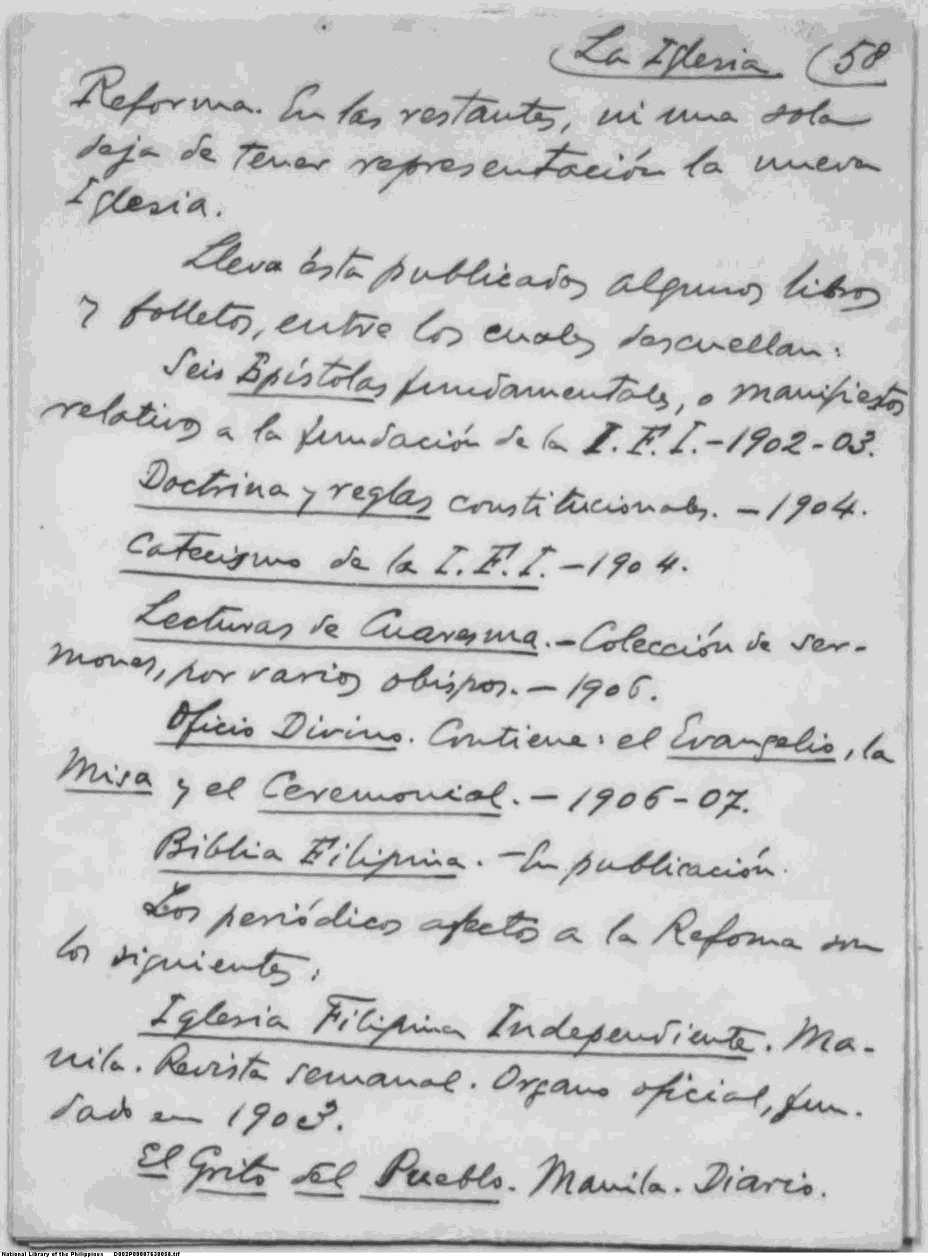 La Iglesia (58
Reforma. En las restantes, ni una sola
deja de tener representación la nueva
Iglesia.
Lleva ésta publicados algunos libros
y folletos, entre los cuales descuellan:
Seis Epístolas fundamentales, o manifiestos
relativos a la fundación de la I. F. I. - 1902-03.
Doctrina y reglas constitucionales. - 1904.
Catecismo de la I. F. I. - 1904.
Lecturas de Cuaresma. - Colección de ser-
mones, por varios obispos. - 1906.
Oficio Divino. Contiene: el Evangelio, la
Misa y el Ceremonial. - 1906-07.
Biblia Filipina. - En publicación.
Los periódicos afectos a la Reforma son
los siguientes:
Iglesia Filipina Independiente. Ma-
nila. Revista semanal. Organo oficial, fun-
dado en 1903.
El Grito del Pueblo. Manila. Diario.
National Library of the Philippines D002P00007630058.tif